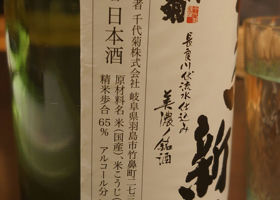 菊
長良川伏流水仕込み
美濃ノ銘酒
新
者 千代菊株式会社 岐阜県羽島市竹鼻町二七
日本酒
原材料名 米(国産)、米こうじ(
精米歩合 65% アルコール分